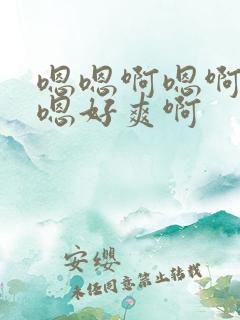 嗯嗯啊嗯啊
嗯好爽啊
安缨
未经同意禁止转载